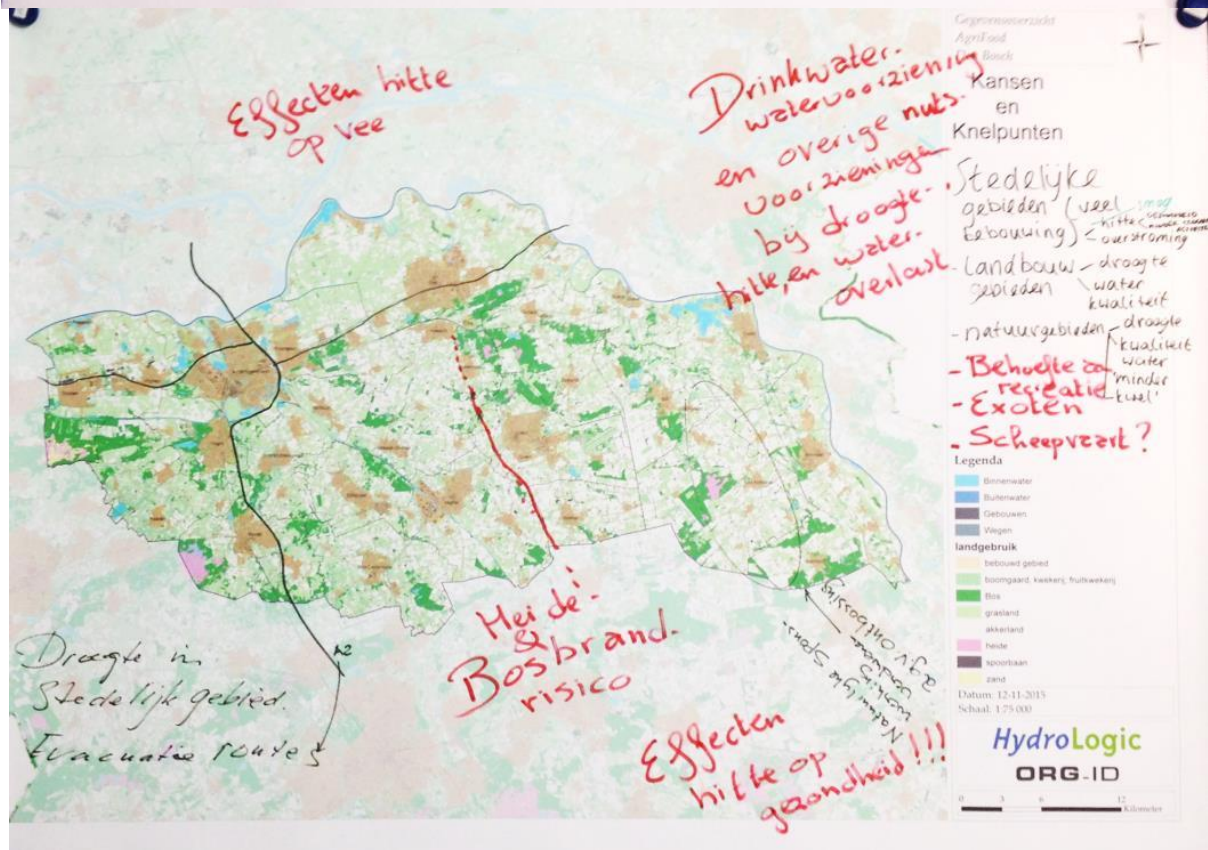 Gegevensoverzicht
AgriFood
Den Bosch
Kansen
en
Knelpunten
Effecten hitte
op vee
Drinkwater-
watervoorziening
en overige nuts-
voorzieningen
bij droogte-,
hitte, en water-
overlast
Stedelijke
gebieden
Bebouwing
veel
hitte
overstroming
- landbouw - droogte
gebieden water
kwaliteit
- natuurgebieden - droogte
kwaliteit
water
minder
kwel
- Behoefte
recreatie
- Exoten
- Scheepvaart?
Legenda
Binnenwater
Buitenwater
Gebouwen
Wegen
landgebruik
bebouwd gebied
boomgaard, kwekerij, fruitkwekerij
Bos
grasland
akkerland
heide
spoorbaan
zand
Datum: 12-11-2015
Schaal: 1:75.000
HydroLogic
ORG-ID
0 3 6 12
Kilometer
A2
Droogte in
Stedelijk gebied
Evacuatie routes
Heide-
&
Bosbrand-
risico
Natuurlijke spons-
werking verdwenen
a.g.v. ontbossing
Effecten
hitte op
gezondheid!!!